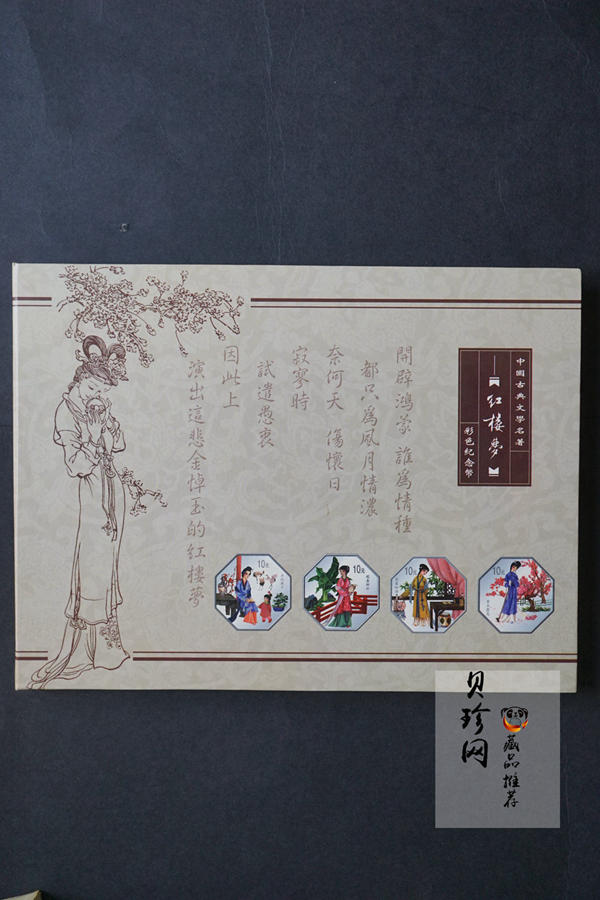 中國古典文學名著
紅樓夢
彩色紀念幣
開辟鴻蒙 誰為情種
都只為風月情濃
奈何天 傷懷日
寂寥時
試遣愚衷
因此上
演出這悲金悼玉的紅樓夢
10元
10元
10元
10元
贝珍网
藏品推荐